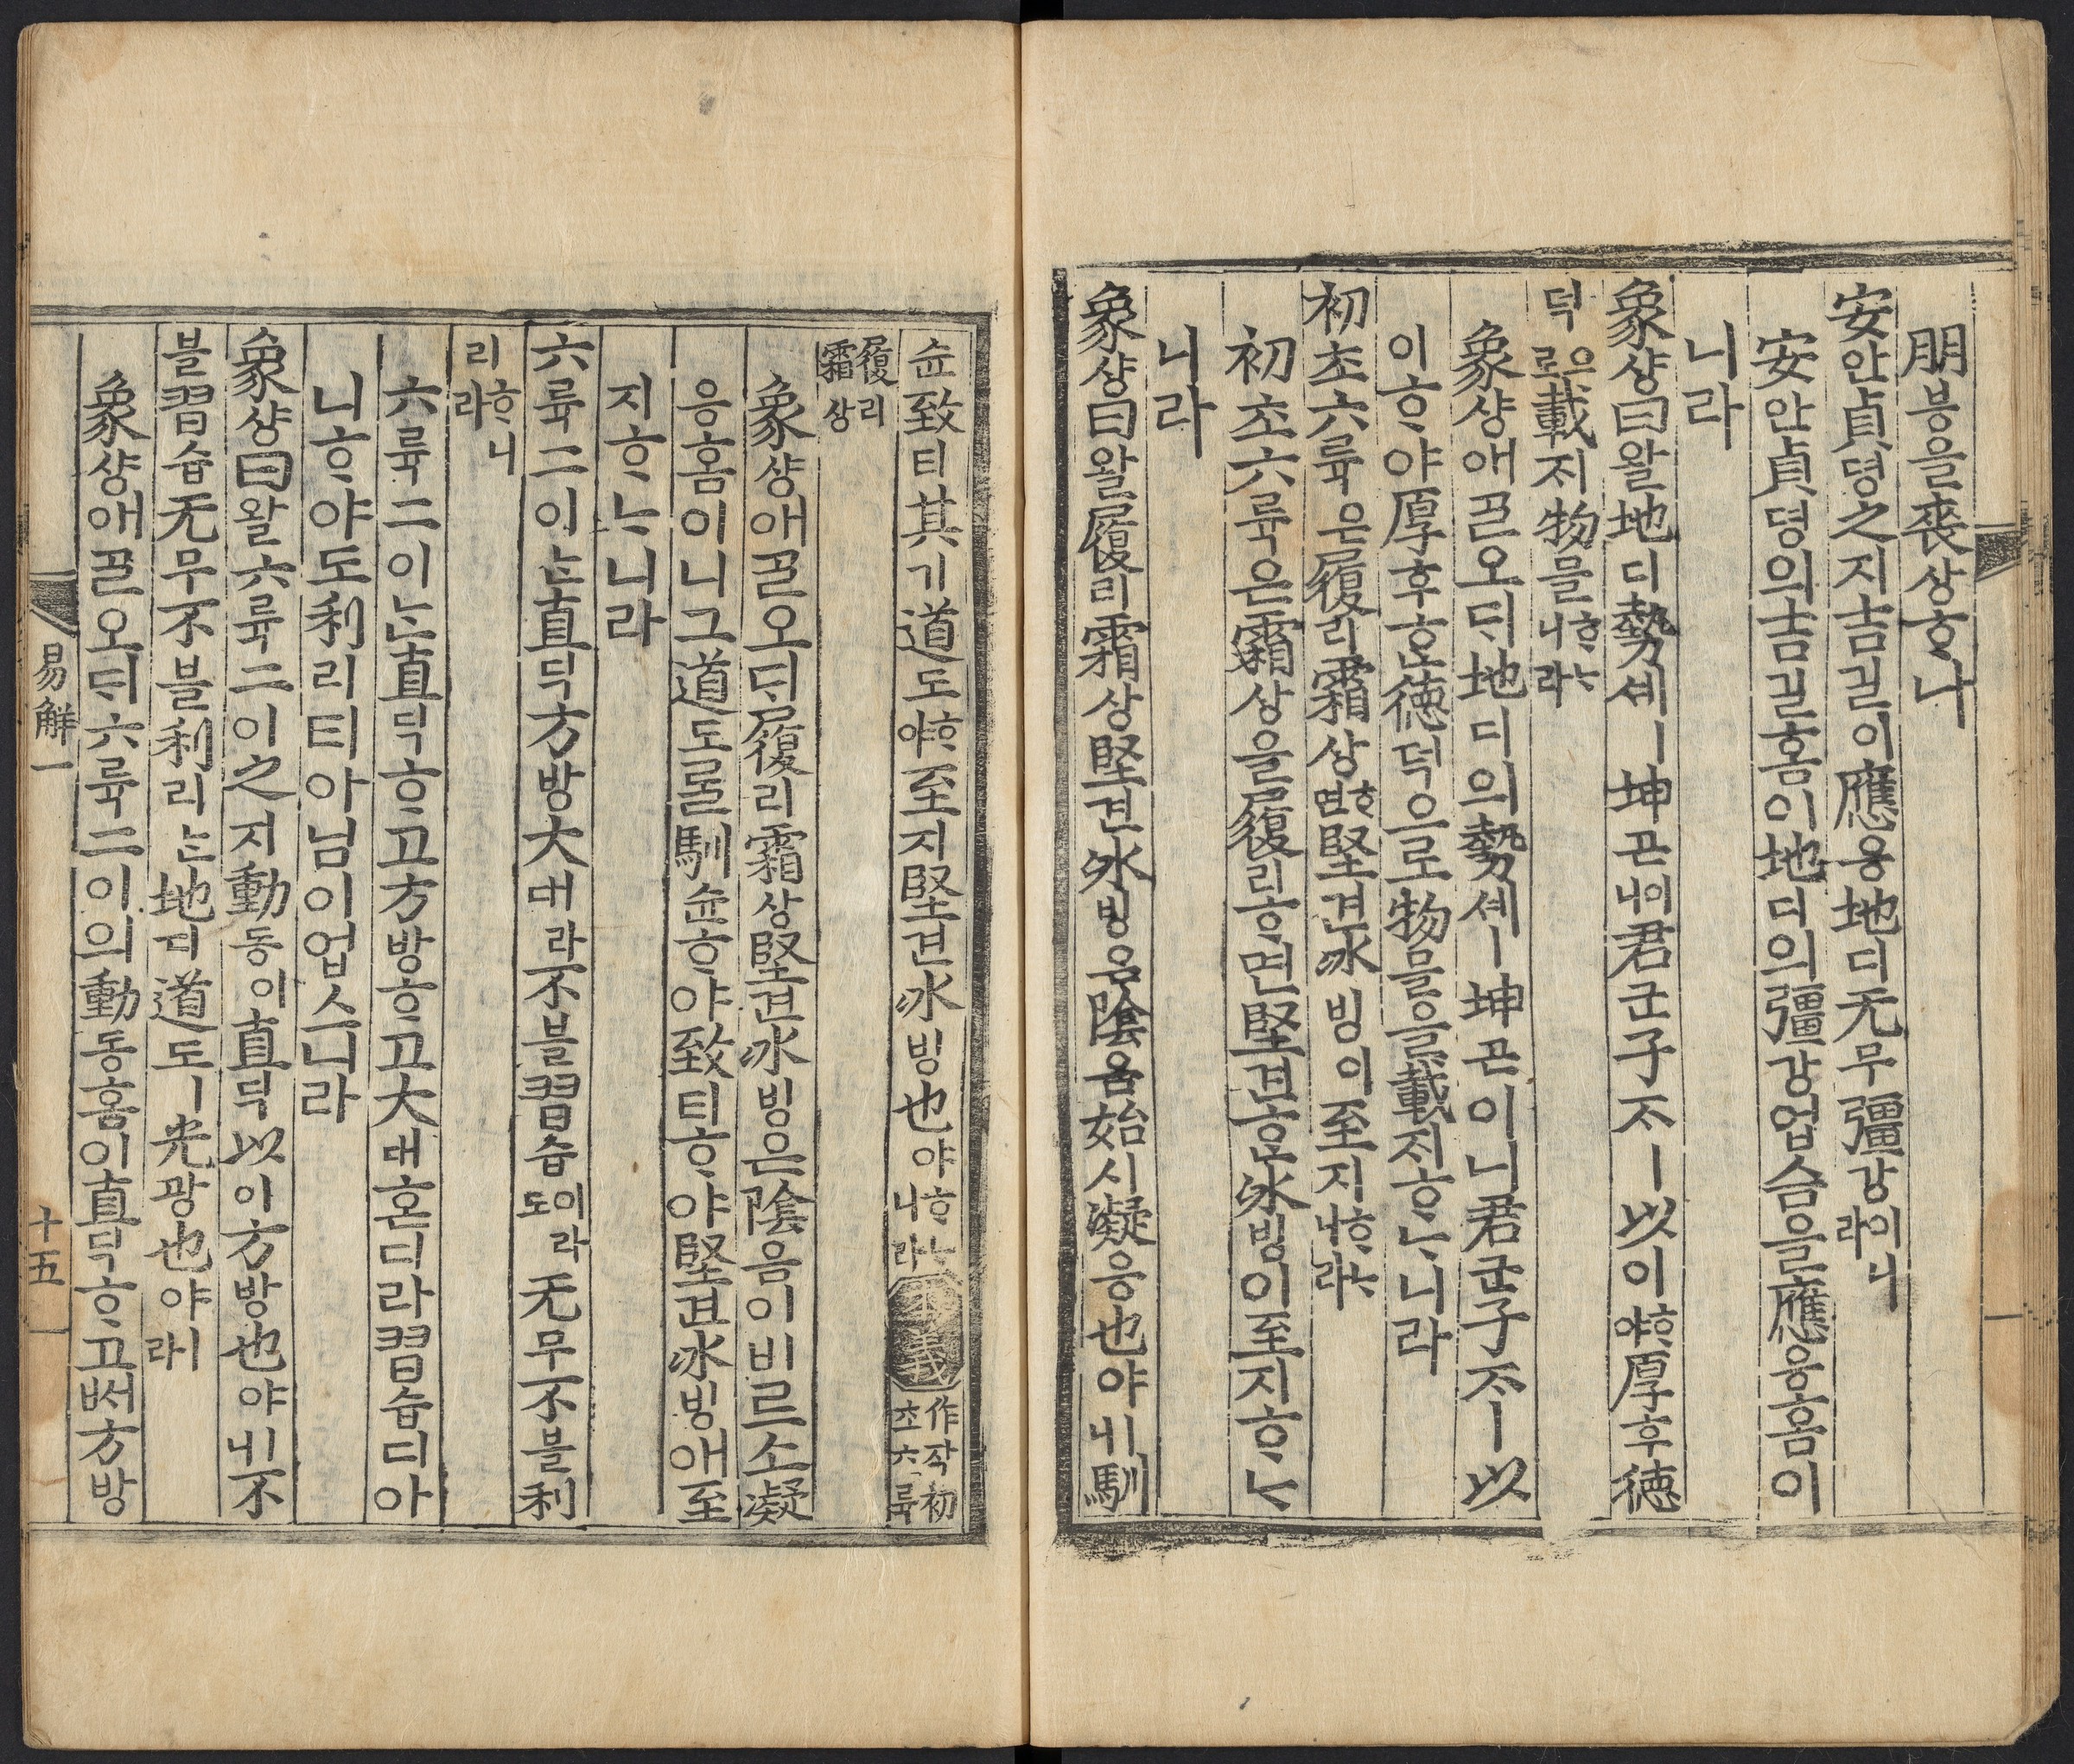 朋붕을喪상ᄒᆞ나
安안貞뎡之지吉길이應응地디无무彊강이니라
安안貞뎡의吉길홈이地디의彊강업슴을應응홈이
니라
象샹曰왈地디勢셰ㅣ坤곤이니君군子ᄌᆞㅣ以이ᄒᆞ야厚후德
덕으로載ᄌᆡ物믈ᄒᆞᄂᆞ니라
象샹애ᄀᆞᆯ오ᄃᆡ地디의勢셰ㅣ坤곤이니君군子ᄌᆞㅣ以
이ᄒᆞ야厚후ᄒᆞᆫ德덕으로物믈을載ᄌᆡᄒᆞᄂᆞ니라
初초六륙은履리霜상ᄒᆞ면堅견冰빙이至지ᄒᆞᄂᆞ니라
初초六륙은霜상을履리ᄒᆞ면堅견ᄒᆞᆫ冰빙이至지ᄒᆞᄂᆞ
니라
象샹曰왈履리霜상堅견冰빙은陰음始시凝응也야ㅣ니馴
슌致티其기道도ᄒᆞ야至지堅견冰빙也야ᄒᆞᄂᆞ니라本義作작初초六륙
履리霜상
象샹애ᄀᆞᆯ오ᄃᆡ履리霜상堅견冰빙은陰음이비르소凝
응홈이니그道도ᄅᆞᆯ馴슌ᄒᆞ야致티ᄒᆞ야堅견冰빙애至
지ᄒᆞᄂᆞ니라
六륙二이ᄂᆞᆫ直딕方방大대라不블習습이라도无무不블利
리ᄒᆞ니라
六륙二이ᄂᆞᆫ直딕ᄒᆞ고方방ᄒᆞ고大대ᄒᆞᆫ디라習습디아
니ᄒᆞ야도利리티아님이업스니라
象샹曰왈六륙二이之지動동이直딕以이方방也야ㅣ니不
블習습无무不블利리ᄂᆞᆫ地디道도ㅣ光광也야ㅣ라
象샹애ᄀᆞᆯ오ᄃᆡ六륙二이의動동홈이直딕ᄒᆞ고ᄡᅥ方방
易解一
十五